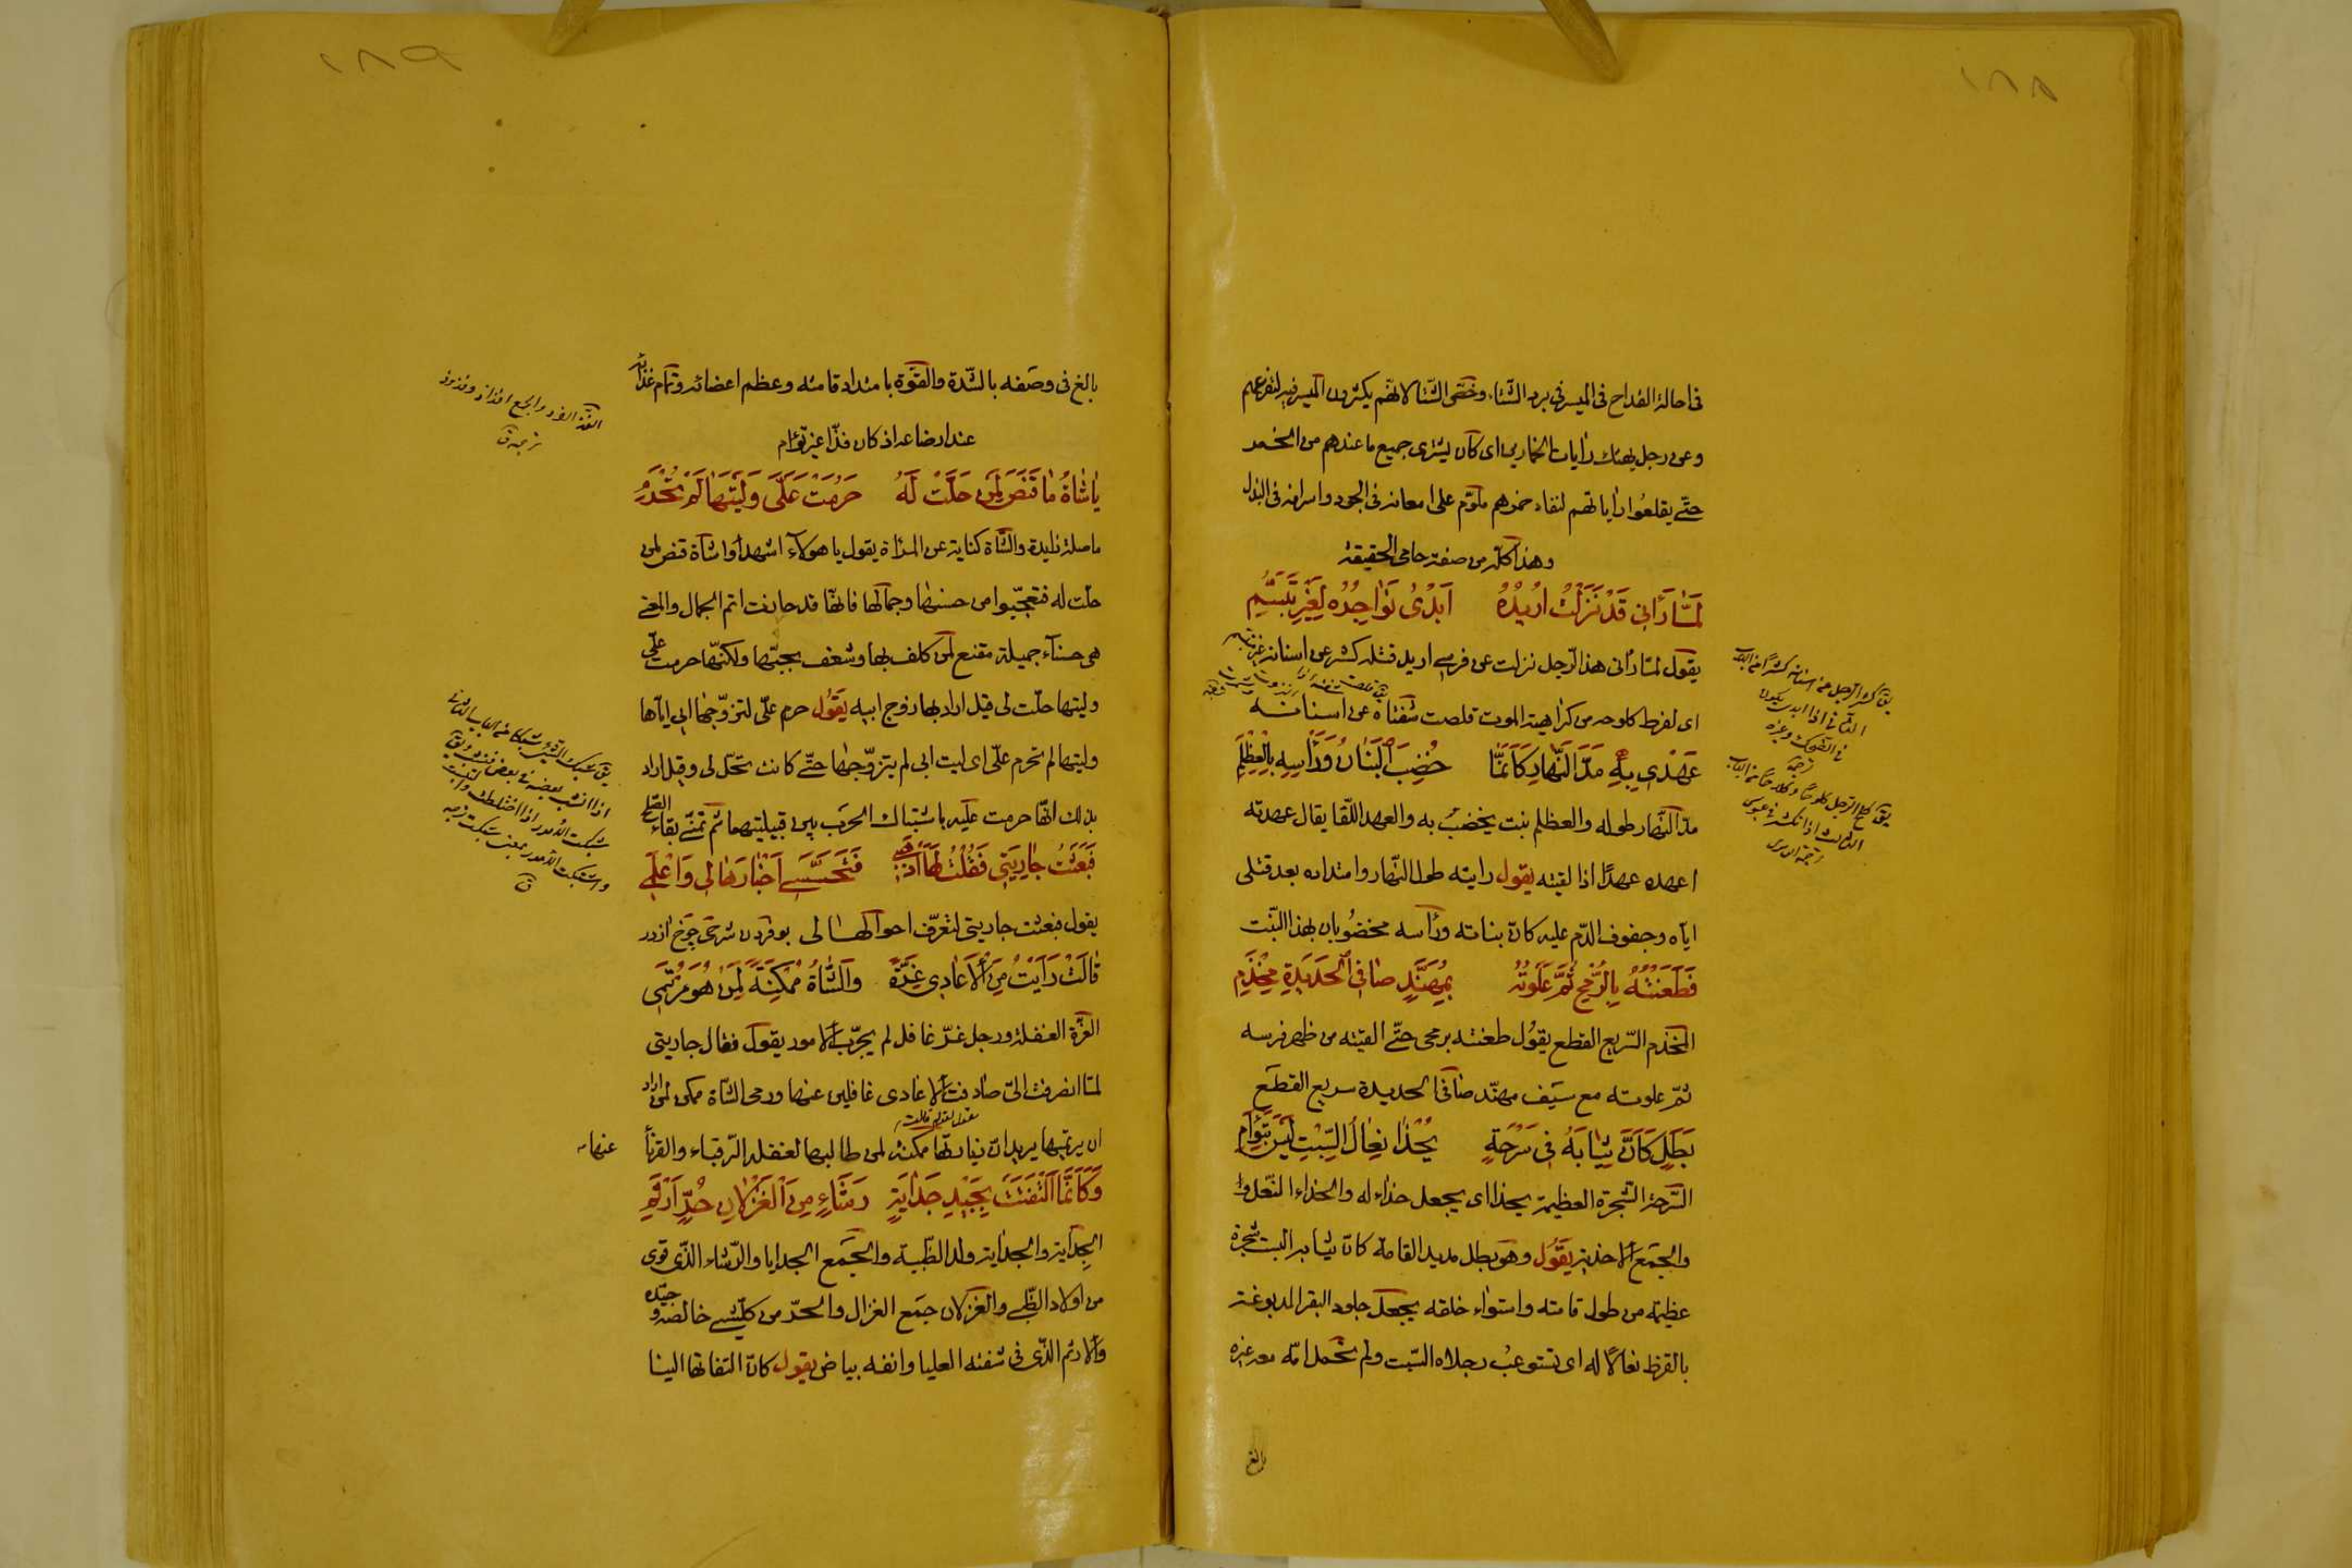 ١٨٨
فى احالة القداح فى الميسر فى برد الشتاء وخص الشتا لانهم يكثرون الميسر فيه لتفرغهم
وعن رجل يهتك رايات الخمارين اى كان يشترى جميع ما عندهم من الخمر
حتّى يقلعُوا راياتهم لنفاد خمرهم ملوّم على امعانه فى الجود واسرافه فى البذل
وهذا كله من صفة حامى الحقيقة
لَمَّا رَأٰنِى قَدْ نَزَلْتُ اُرِيْدُهُ اَبْدٰى نَوٰاجِذُهُ لِغَيْرِ تَبَسُّمِ
يقول لمّا رأنى هذا الرّجل نزلت عن فرسى اريد قتله كشر عن اسنانه غير متبسم
اى لفرط كلوحه من كراهية الموت قلصت شفتاه عن اسنانه
عَهْدِي بِهِ مَدَّ النَّهٰارِ كَاَنَّمٰا خُضِبَ الْبَنٰانُ وَرَأْسِهِ بِالْعِظْلِمِ
مدّ النّهار طوله والعظلم نبت يخضبُ به والعهد اللّقا يقال عهدته
اعهده عهدًا اذا لقيته يقول رايته طول النّهار وامتداده بعد قتلى
ايّاه وجفوف الدّم عليه كانّ بنانه ورأسه مخضُوبان بهذا النّبت
فَطَعَنْتُهُ بِالرُّمْحِ ثُمَّ عَلَوْتُهُ بِمُهَنَّدٍ صٰافِى الْحَدٖيدَةِ مِخْذَمِ
المخذم السّريع القطع يقوُل طعنته برمحى حتّى القيته من ظهر فرسه
ثمّ علوته مع سَيف مهنّد صٰافى الحديدة سريع القطَع
بَطَلٍ كَاَنَّ ثِيٰابَهُ فِى سَرْحَةٍ يُحْذٰى نِعٰالَ السِّبْتِ لَيْسَ بِتَوْأَمِ
السّرحة الشّجرة العظيمة يحذا اى يجعل حذاء له والحذاء النّعل
والجمَع الاحذية يَقُول وهو بطل مديد القامة كانّ ثيابه البست شجرة
عظيمة من طول قامته واستواء خلقه يجعل جلود البقر المدبوغة
بالقرظ نعالًا له اى تستوعبُ رجلاه السّبت ولم تحمل امّه معه غيره
بالغ
١٨٩
بالغ فى وصَفه بالشّدة والقوّة بامتداد قامته وعظم اعضائه وتمام غذائه
عند ارضاعه اذ كان فذّا غير تؤام
يٰا شٰاةَ مٰا قَنَصٍ لِمَنْ حَلَّتْ لَهُ حَرُمَتْ عَلَىَّ وَلَيْتَهٰا لَمْ تَحْرُمِ
ماصلة زايدة والشّاة كناية عن المرأة يقول يا هولآء اشهدوا شاة قنص لمن
حلّت له فتعجّبوا من حسنها وجمالها فانّها قد حازت اتم الجمال والمعنى
هى حسنآء جميلة مقنع لمن كلف بها وشغف بحبّها ولكنّها حرمت علىّ
وليتها حلّت لى قيل اراد بها زوج ابيه يَقوُل حرم علىّ لتزوّجها ابى ايّاها
وليتها لم تحرم علىّ اى ليت ابى لم يتزوّجها حتّى كانت تحلّ لى وقيل اراد
بذلك انّها حرمت عليه باشتباك الحرَب بين قبيلتيهما ثم تمنّى بقاء الصّلح
فَبَعَثْتُ جٰارِيَتِى فَقُلْتُ لَهٰا اذْهَبِى فَتَحَسَّسِى اَخْبٰارَهٰا لِى وَاعْلَمِى
يقول فبعثت جاريتى لتعرّف احوالهـا لى بوفردن شرحى چوخ ازدر
قٰالَتْ رَاَيْتُ مِنَ الْاَعٰادِى غِرَّةً وَالشّٰاةُ مُمْكِنَةٌ لِمَنْ هُوَ مُرْتَمِى
الغرّة الغفلة ورجل غرّ غافل لم يجرّب الامور يقول فقال جاريتى
لمّا انصرفت الىّ صادفت الاعادى غافلين عنها ورمى الشّاة ممكن لمن اراد
ان يرتميها يريد انّ زيارتها ممكنة لمن طالبها لغفلة الرّقباء والقرنآ عنها
وَكَاَنَّمَا الْتَفَتَتْ بِجٖيدِ جَدٰايَةٍ رَشَاءٍ مِنَ الْغَزْلٰانِ حُرٍّ اَرْثَمِ
الجِداية والجداية ولد الظّبية والجَمع الجدايا والرّشاء الّذى قوى
من اولاد الظّبى والغزلان جمَع الغزال والحرّ من كلّ شىء خالصه وجيّده
والارثم الّذى فى شفته العليا وانفه بياض يقول كانّ التفاتها الينا